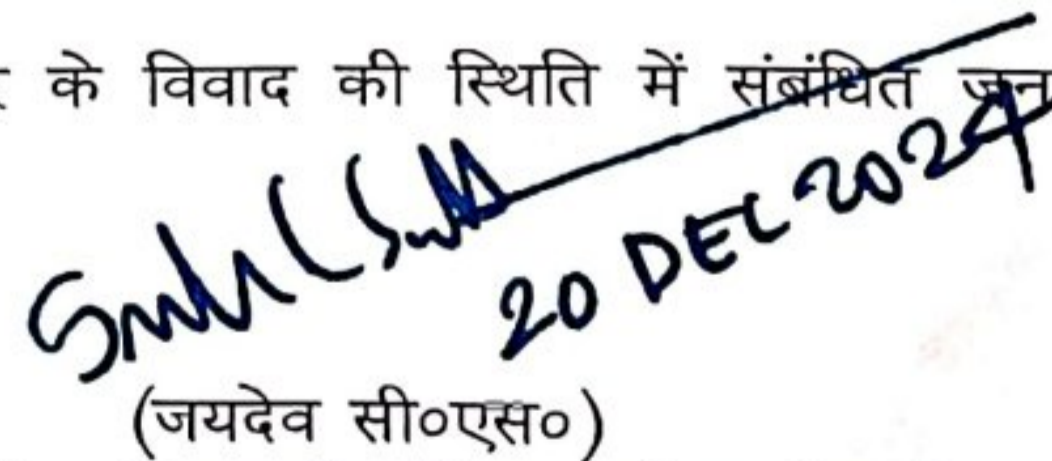 के विवाद की स्थिति में संबंधित जन
20 DEC 2024
(जयदेव सी०एस०)